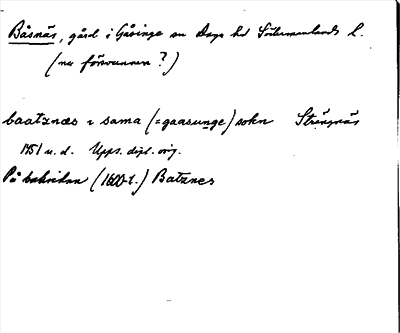 Båsnäs, gård i Gåsinge sn Daga hd Södermanlands l.
(nu försvunnen?)
baatznæs i sama (=gaasunge) sokn Strängnäs
1451 u.d. Upps. dipl. orig.
På baksidan (1600-t.) Batznes